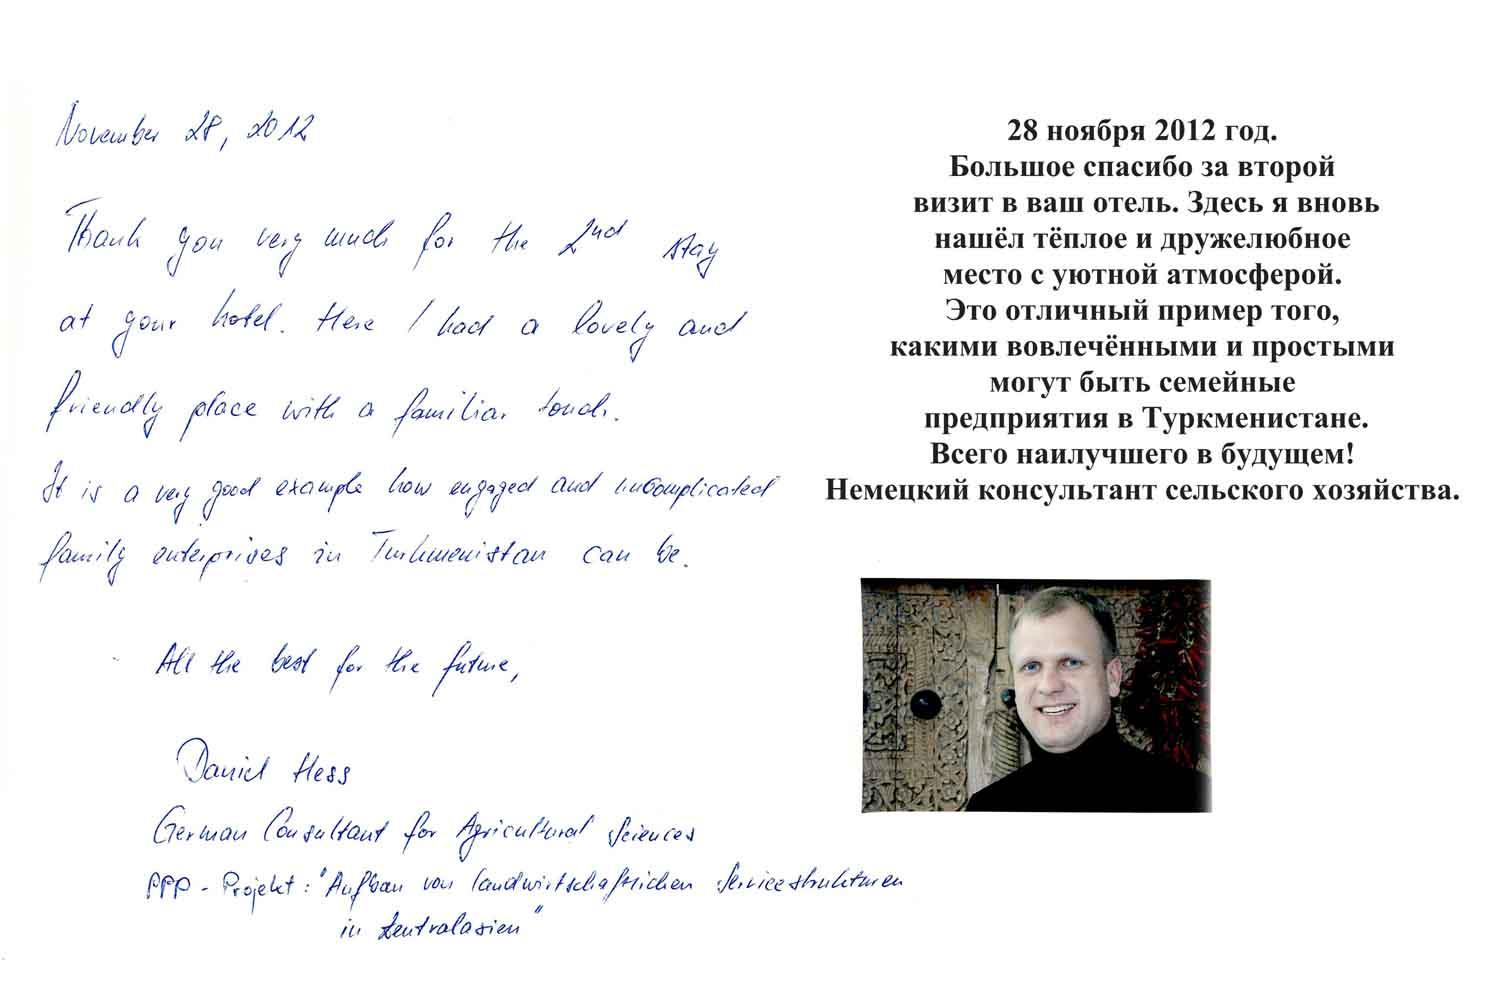 November 28, 2012
Thank you very much for the 2nd stay
at your hotel. Here I had a lovely and
friendly place with a familiar touch.
It is a very good example how engaged and uncomplicated
family enterprises in Turkmenistan can be.
All the best for the future,
Daniel Hess
German Consultant for Agricultural Sciences
PPP - Projekt: "Aufbau von landwirtschaftlichen Servicestrukturen
in Zentralasien"
28 ноября 2012 год.
Большое спасибо за второй
визит в ваш отель. Здесь я вновь
нашёл тёплое и дружелюбное
место с уютной атмосферой.
Это отличный пример того,
какими вовлечёнными и простыми
могут быть семейные
предприятия в Туркменистане.
Всего наилучшего в будущем!
Немецкий консультант сельского хозяйства.